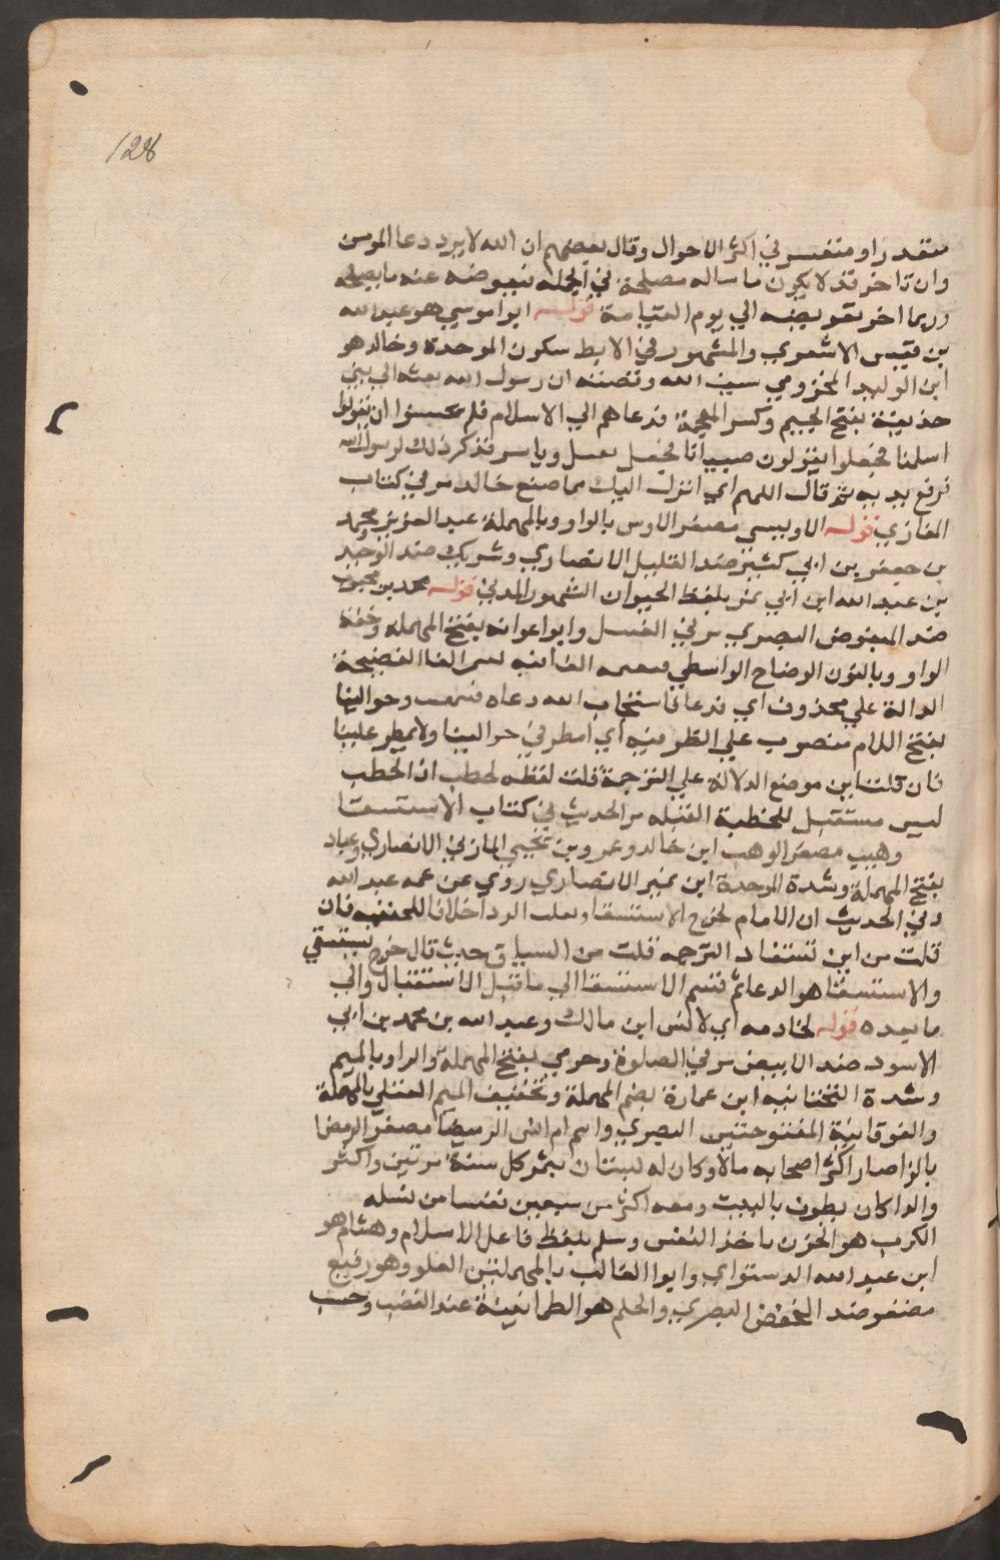 128
متقدرا ومتفسر في اكثر الاحوال وقال بعضهم ان الله لا يرد دعا المومن
وان تاخر قد لا يكون ما ساله مصلحة في الجملة فيعوضه عنه ما يصلحه
وربما اخر تعويضه الي يوم القيامة قوله ابوا موسي هو عبد الله
بن قيس الاشعري والمشهور في الابط سكون الموحدة وخالد هو
ابن الوليد المخزومي سيف الله وقصته ان رسول الله بعثه الي بني
جذيمة بفتح الجيم وكسر المعجمة فدعاهم الي الاسلام فلم يحسنوا ان يقولوا
اسلمنا فجعلوا يقولون صبيانا فجعل يقتل وياسر فذكر ذلك لرسول الله
فرفع يديه ثم قال اللهم اني ابرا اليك مما صنع خالد مر في كتاب
المغازي قوله الاويسي مصغر الاوس بالواو وبالمهملة عبد العزيز ومحمد
بن جعفر بن ابي كثير ضد القليل الانصاري وشريك ضد الوحيد
بن عبد الله ابن ابي نمر بلفظ الحيوان المشهور المدني قوله محمد بن محبوب
ضد المبغوض البصري مر في الغسل وابوا عوانه بفتح المهملة وخفة
الواو وبالنون الوضاح الواسطي الفا الفصيحة
الدالة علي محذوف اي فدعا فاستجاب الله دعاه وحوالينا
بفتح اللام منصوب علي الظرفيه اي امطر في حوالينا ولا يمطر علينا
فان قلت اين موضع الدلالة علي الترجمة قلت لفظه يخطب اذ الخطب
ليس مستقبل للخطبة القبله مر الحديث في كتاب الاستسقا
وهيب مصغر الوهب ابن خالد وعمرو بن يحيي المازني الانصاري وعباد
بفتح المهملة وشدة الموحدة ابن تميم الانصاري روي عن عمه عبد الله
وفي الحديث ان الامام يخرج للاستسقا ويقلب الردا خلافا للحنفيه فان
قلت من اين تستفاد الترجمه قلت من السياق حيث قال خرج يستسقي
والاستسقا هو الدعا ثم قسم الاستسقا الي ما قبل الاستقبال والي
ما بعده قوله لخادمه اي لانس ابن مالك وعبد الله بن محمد بن ابي
الاسود ضد الابيض مر في الصلوة وحرمي بفتح المهملة والرا وبالميم
وشدة التحتانيه ابن عمارة بضم المهملة وتخفيف الميم العتكي بالمهملة
والفوقانية المفتوحتين البصري واسم ام انس الرميصا مصغر الرمضا
بالراء صار اكثر اصحابه مالا وكان له بستان يثمر كل سنة مرتين واكثر
والدا كان يطوف بالبيت ومعه اكثر من سبعين نفسا من نسله
الكرب هو الحزن ياخذ النفس وسلم بلفظ فاعل الاسلام وهشام هو
ابن عبد الله الدستواي وابوا العالب بالمهملتين العلو وهو رفيع
مصغر ضد الخفض البصري والحلم هو الطمانينة عند الغضب وحيث